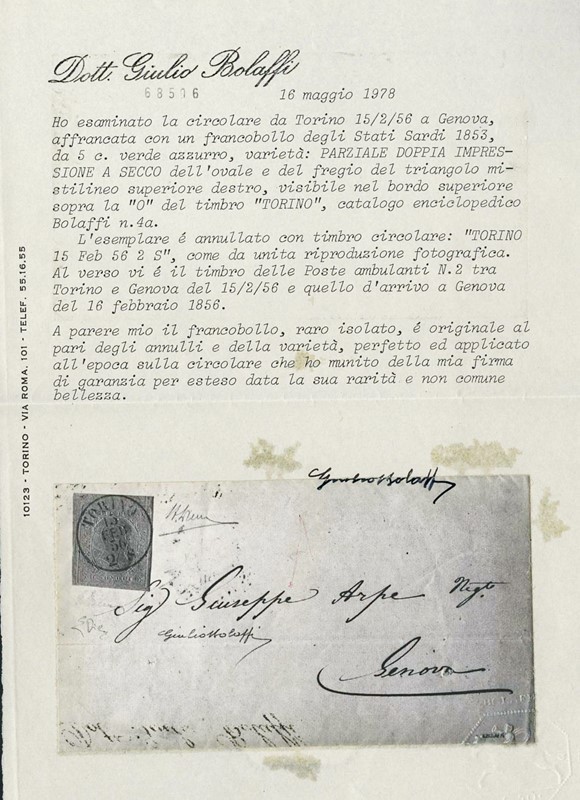 Dott. Giulio Bolaffi
68516
16 maggio 1978
Ho esaminato la circolare da Torino 15/2/56 a Genova,
affrancata con un francobollo degli Stati Sardi 1853,
da 5 c. verde azzurro, varietà: PARZIALE DOPPIA IMPRES-
SIONE A SECCO dell'ovale e del fregio del triangolo mi-
stilineo superiore destro, visibile nel bordo superiore
sopra la "O" del timbro "TORINO", catalogo enciclopedico
Bolaffi n.4a.
L'esemplare é annullato con timbro circolare: "TORINO
15 Feb 56 2 S", come da unita riproduzione fotografica.
Al verso vi é il timbro delle Poste ambulanti N.2 tra
Torino e Genova del 15/2/56 e quello d'arrivo a Genova
del 16 febbraio 1856.
A parere mio il francobollo, raro isolato, é originale al
pari degli annulli e della varietà, perfetto ed applicato
all'epoca sulla circolare che ho munito della mia firma
di garanzia per esteso data la sua rarità e non comune
bellezza.
10123 - TORINO - VIA ROMA. 101 - TELEF. 55.16.55
Giulio Bolaffi
TORINO
15
FEB
56
2 S
Sig Giuseppe Arpe Negte
Giulio Bolaffi
Genova